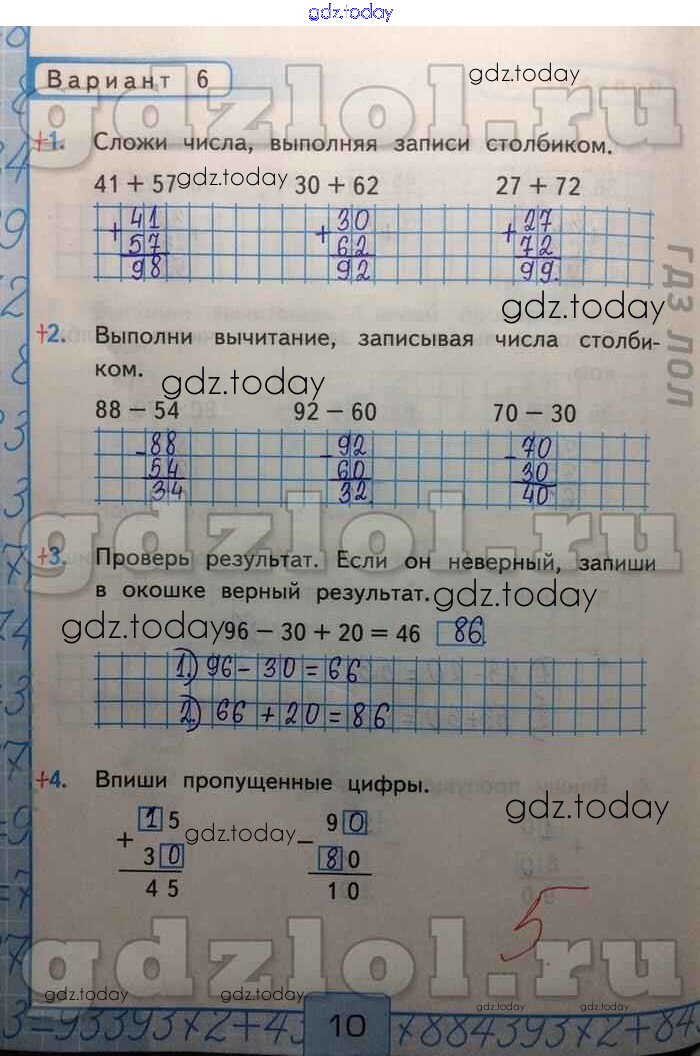 gdz.today
Вариант 6
gdz.today
gdzlol.ru
+1. Сложи числа, выполняя записи столбиком.
41 + 57 gdz.today 30 + 62 27 + 72
+ 41 + 30 + 27
57 62 72
98 92 99.
гдз лол
gdz.today
+2. Выполни вычитание, записывая числа столби-
ком.
gdz.today
88 − 54 92 − 60 70 − 30
- 88 - 92 - 70
54 60 30
34 32 40
gdzlol.ru
+3. Проверь результат. Если он неверный, запиши
в окошке верный результат. gdz.today
gdz.today 96 − 30 + 20 = 46 86
1.) 96 - 30 = 66
2.) 66 + 20 = 86
+4. Впиши пропущенные цифры.
15 90
+ gdz.today − gdz.today
30 80
45 10
5
gdzlol.ru
gdz.today gdz.today gdz.today gdz.today
3=93393×2+43 10 ×884393×2+84